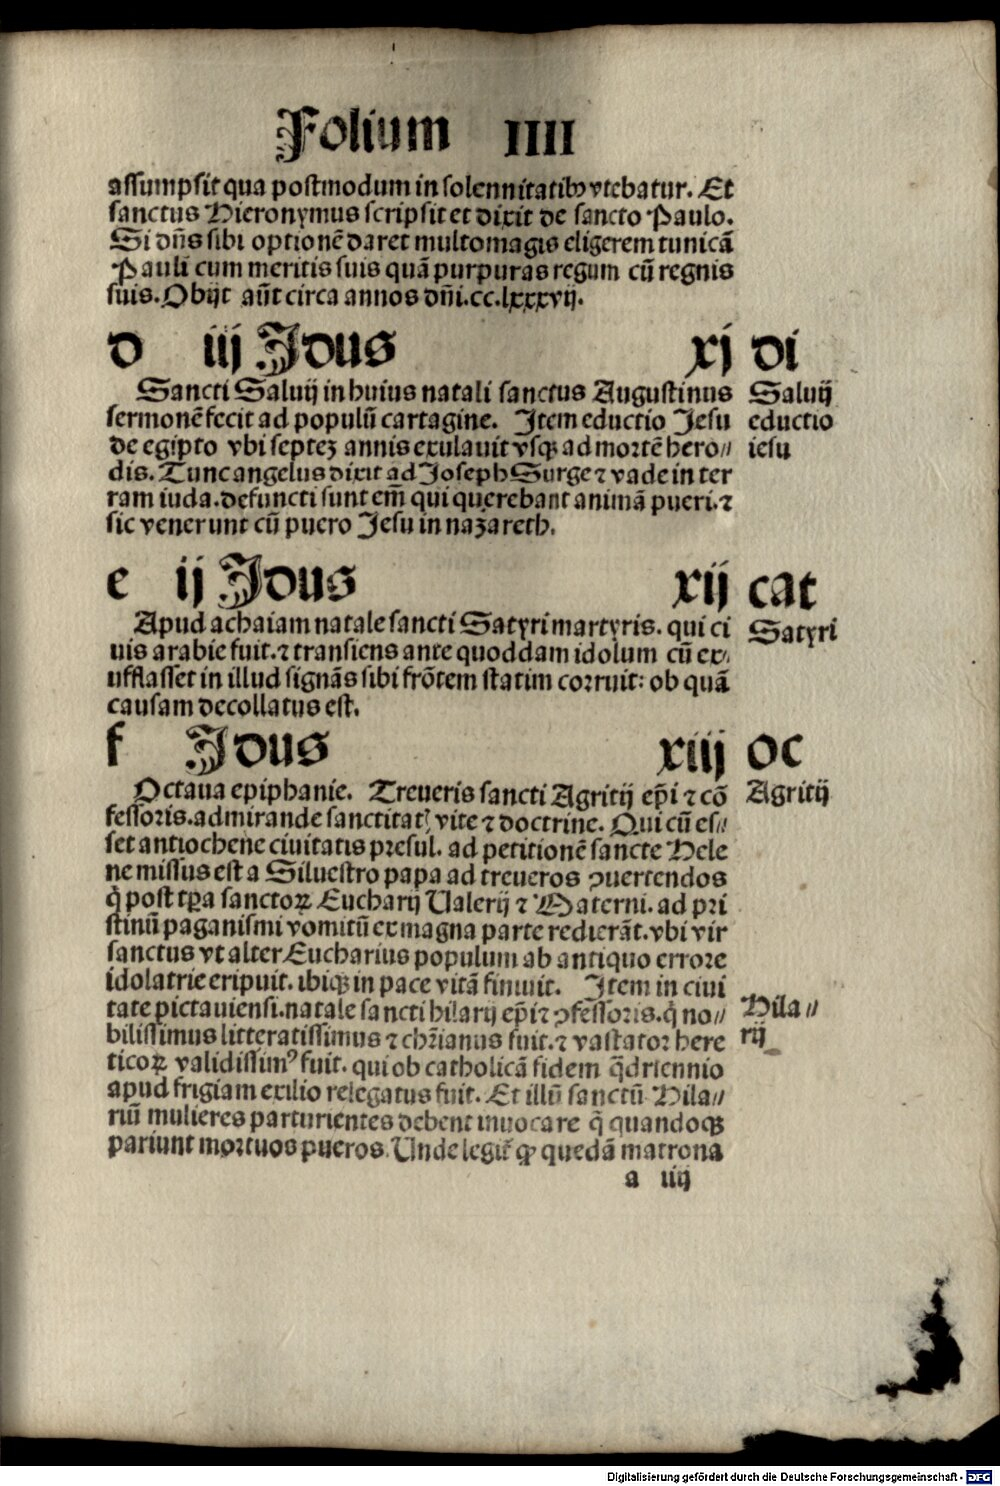 Folium IIII
assumpsit qua postmodum in solennitatibꝰ vtebatur. Et
sanctus Hieronymus scripsit et dixit de sancto Paulo.
Si dñs sibi optionē daret multomagis eligerem tunicā
Pauli cum meritis suis quā purpuras regum cū regnis
suis. Obijt aūt circa annos dñi.cc.lxxxvij.
d iij Idus xj di
Sancti Saluij in huius natali sanctus Augustinus Saluij
sermonē fecit ad populū cartagine. Item eductio Jesu eductio
de egipto vbi septeʒ annis exulauit vsqꝫ ad mortē hero⸗ iesu
dis. Tunc angelus dixit ad Joseph Surge ⁊ vade in ter
ram iuda.defuncti sunt em̄ qui querebant animā pueri.⁊
sic venerunt cū puero Jesu in naʒareth.
e ij Idus xij cat
Apud achaiam natale sancti Satyri martyris. qui ci Satyri
uis arabie fuit.⁊ transiens ante quoddam idolum cū ex⸗
ufflasset in illud signās sibi frōtem statim corruit: ob quā
causam decollatus est.
f Idus xiij oc
Octaua epiphanie. Treueris sancti Agritij ep̄i ⁊ cō Agritij
fessoris.admirande sanctitatꝭ vite ⁊ doctrine. Qui cū es⸗
set antiochene ciuitatis presul. ad petitionē sancte Hele
ne missus est a Siluestro papa ad treueros ꝯuertendos
q̇ post tp̄a sanctoꝝ Eucharij Ualerij ⁊ Materni. ad pri
stinū paganismi vomitū ex magna parte redierāt.vbi vir
sanctus vt alter Eucharius populum ab antiquo errore
idolatrie eripuit. ibiqꝫ in pace vitā finiuit. Item in ciui
tate pictauiensi.natale sancti hilarij ep̄i ⁊ ꝯfessoris.q̇ no⸗ Hila⸗
bilissimus litteratissimus ⁊ chr̄ianus fuit.⁊ vastator here rij
ticoꝝ validissimꝰ fuit. qui ob catholicā fidem q̄driennio
apud frigiam exilio relegatus fuit. Et illū sanctū Hila⸗
riū mulieres parturientes debent inuocare q̄ quandoqꝫ
pariunt mortuos pueros. Unde legit̄ ꝙ quedā matrona
a iiij
Digitalisierung gefördert durch die Deutsche Forschungsgemeinschaft - DFG